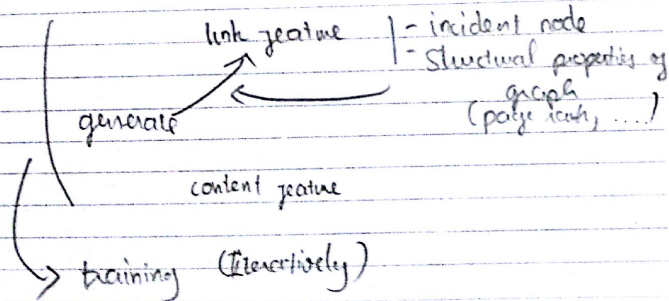 link feature
- incident node
- Structural properties of
graph
(page rank, ....)
generate
content feature
training (Iteractively)